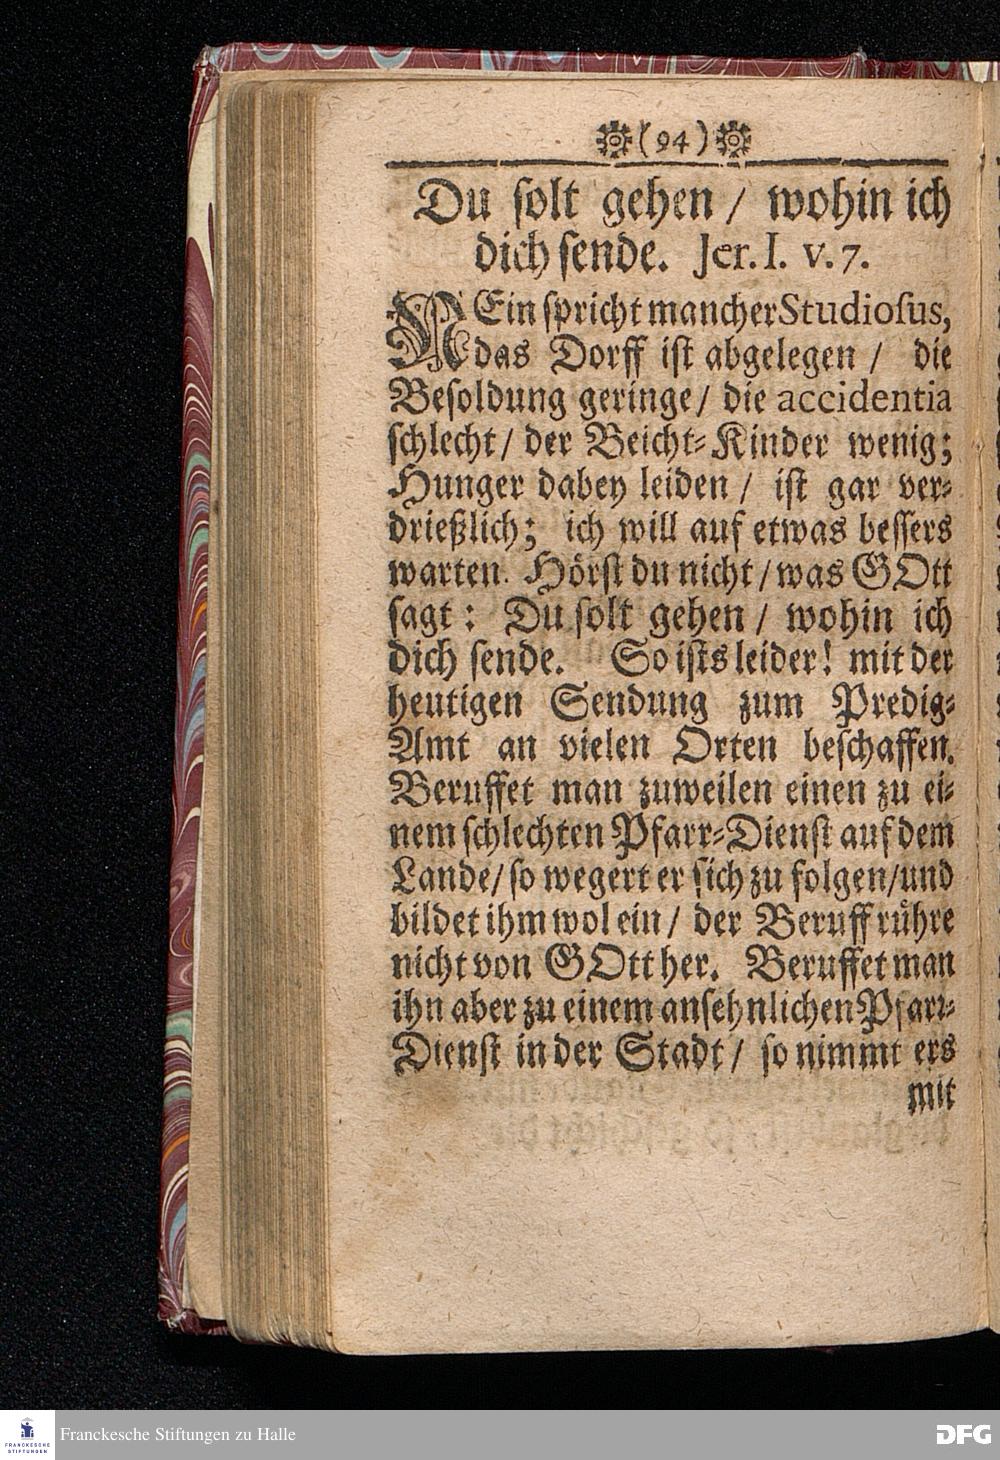 (94)
Du ſolt gehen / wohin ich
dich ſende. Jer. I. v. 7.
NEin ſpricht mancher Studioſus,
das Dorff iſt abgelegen / die
Beſoldung geringe / die accidentia
ſchlecht / der Beicht-Kinder wenig;
Hunger dabey leiden / iſt gar ver-
drießlich; ich will auf etwas beſſers
warten. Hörſt du nicht / was GOtt
ſagt: Du ſolt gehen / wohin ich
dich ſende. So iſts leider! mit der
heutigen Sendung zum Predig-
Amt an vielen Orten beſchaffen.
Beruffet man zuweilen einen zu ei-
nem ſchlechten Pfarr-Dienſt auf dem
Lande / ſo wegert er ſich zu folgen / und
bildet ihm wol ein / der Beruff rühre
nicht von GOtt her. Beruffet man
ihn aber zu einem anſehnlichen Pfarr-
Dienſt in der Stadt / ſo nimmt ers
mit
FRANCKESCHE
STIFTUNGEN
Franckesche Stiftungen zu Halle
DFG